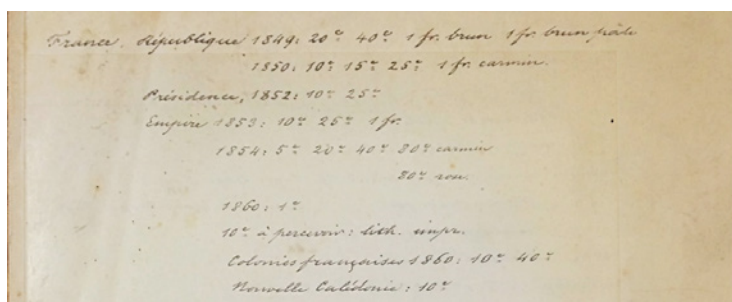 France. République 1849: 20c 40c 1 fr. brun 1 fr. brun pâle
1850: 10c 15c 25c 1 fr. carmin.
Présidence, 1852: 10c 25c
Empire 1853: 10c 25c 1 fr.
1854: 5c 20c 40c 80c carmin
80c rose.
1860: 1c
10c à percevoir: lith. impr.
Colonies françaises 1860: 10c 40c
Nouvelle Calédonie: 10c